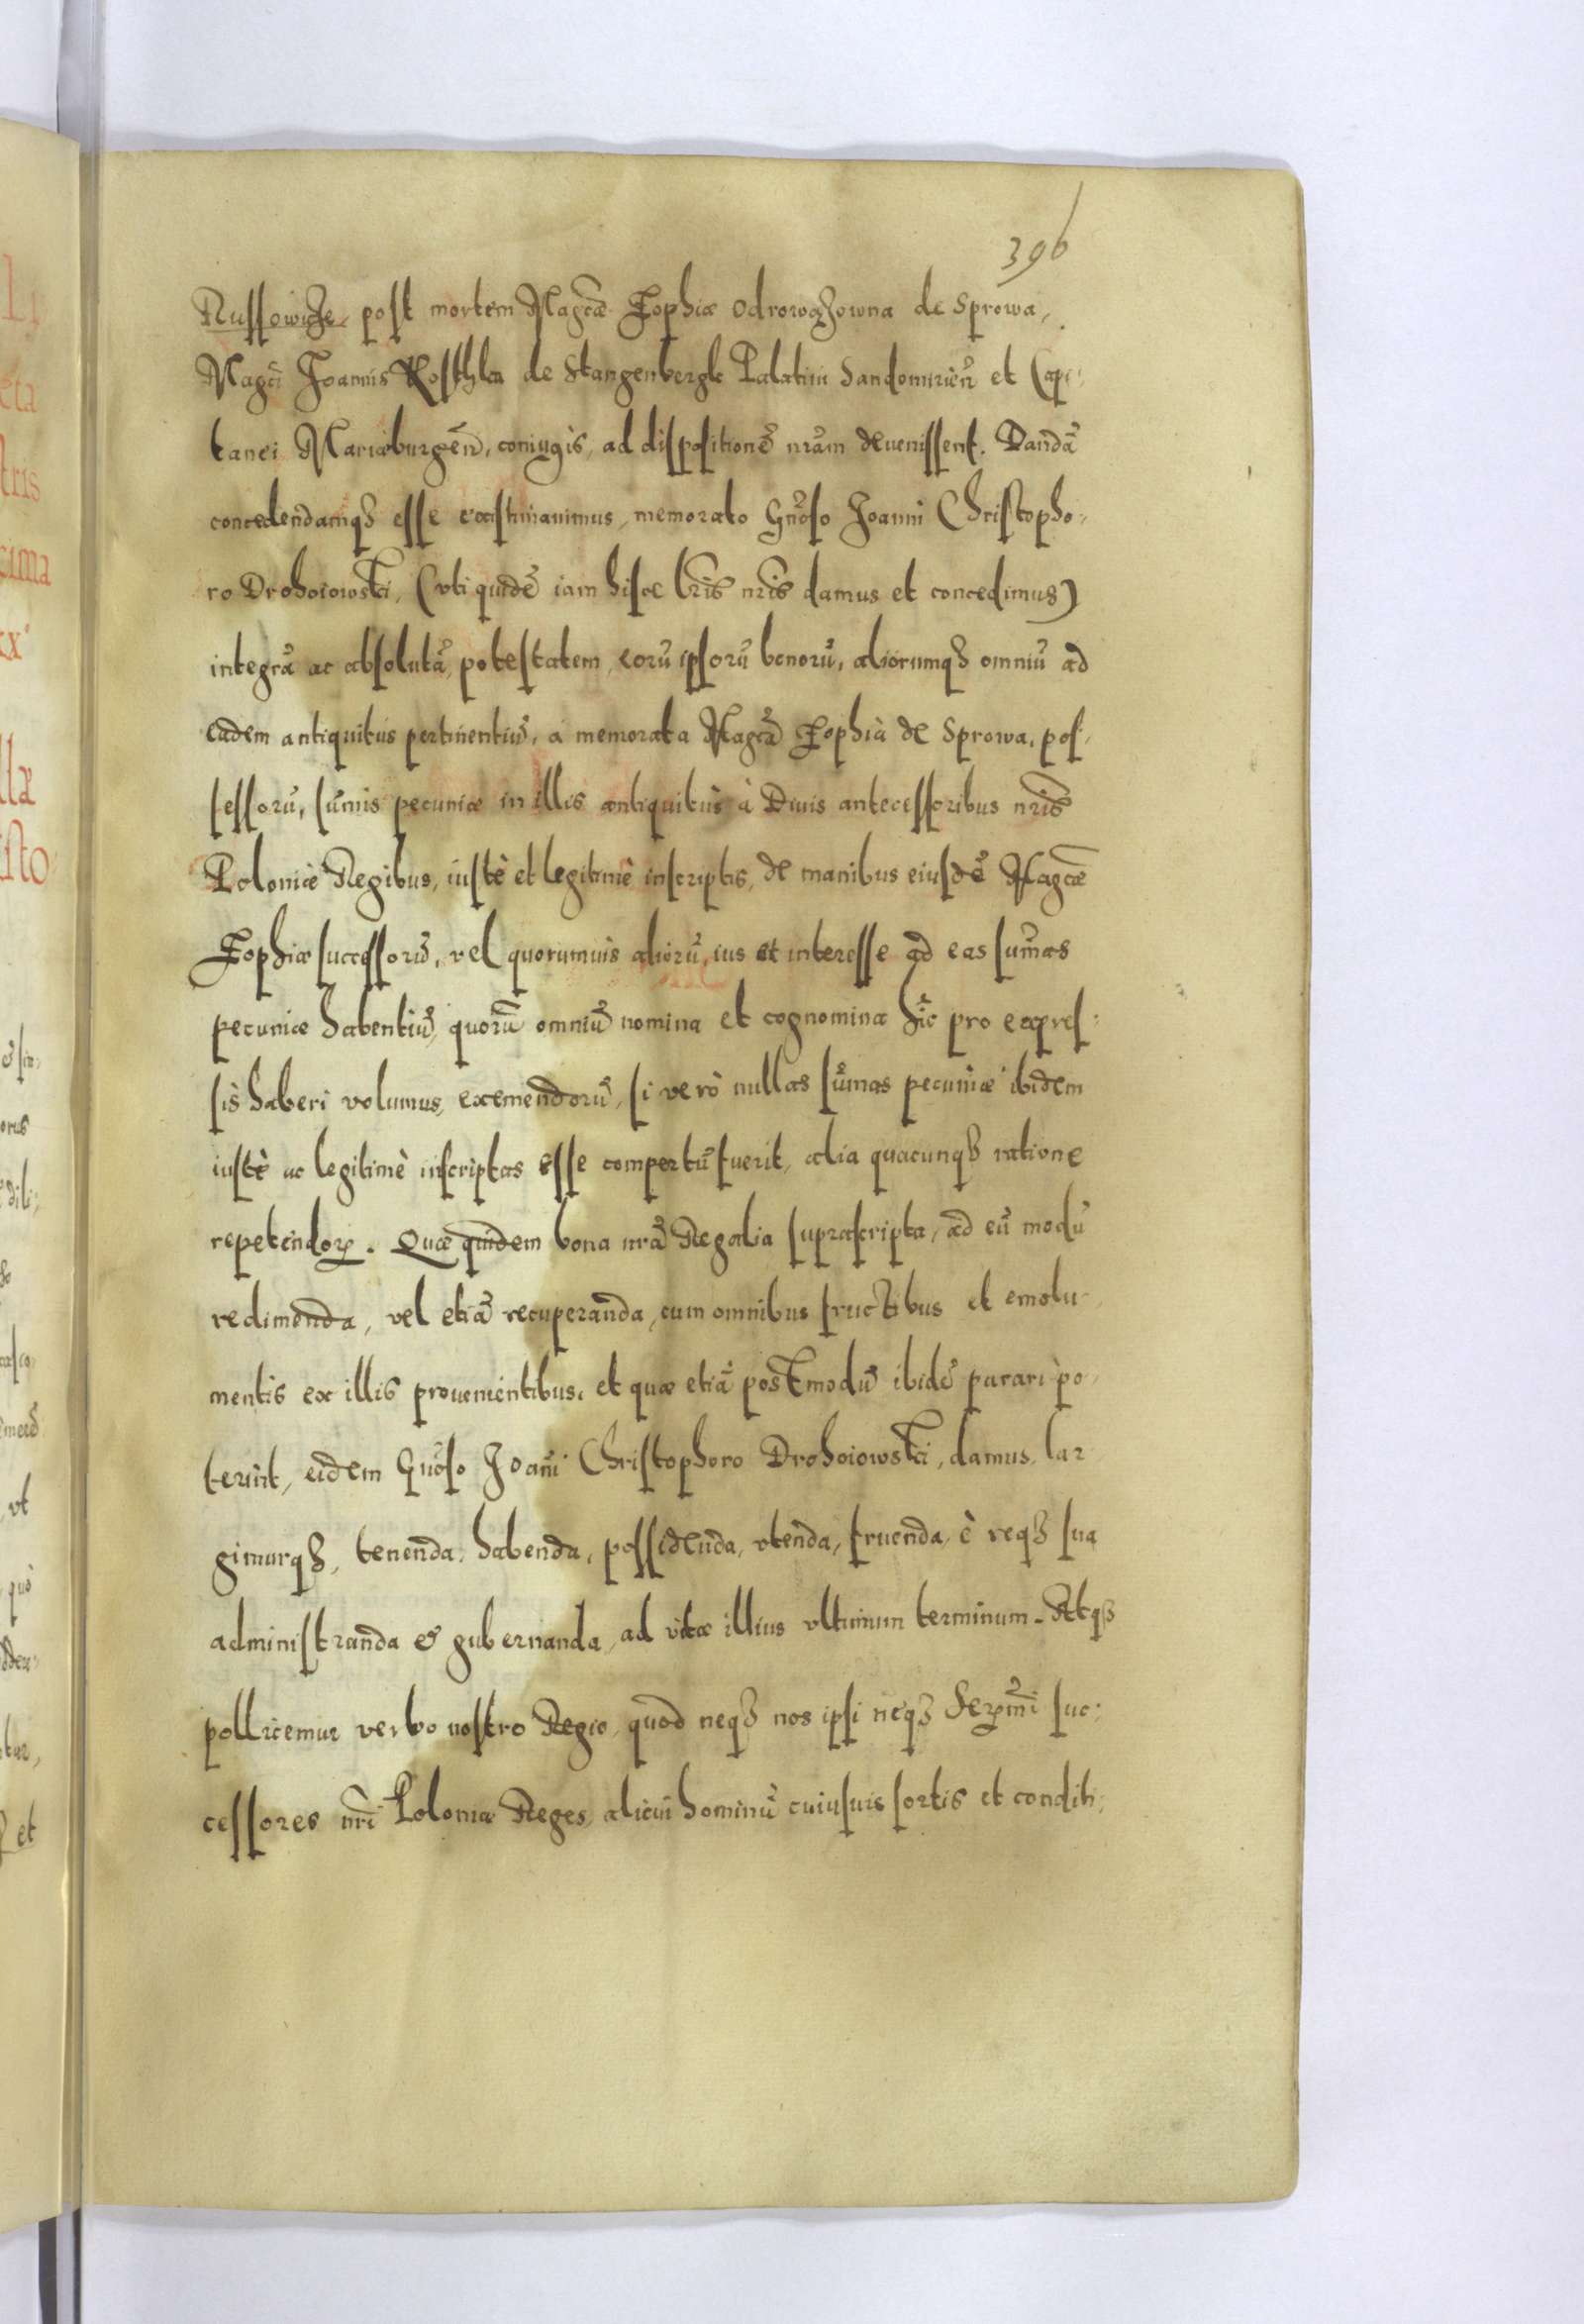 396
Russowicze, post mortem Magcæ Sophiæ Odrowążowna de Sprowa,
Magci Joannis Kosthka de Stangenbergk Palatini Sandomirień et Capi,
tanei Mariæburgeń, coniugis, ad dispositionē nrām deuenissent. Dandā
concedendamq3 esse existimauimus, memorato Gnoso Joanni Christopho,
ro Drohoiowski, (vti quidē iam hisce lr̄is nr̄is damus et concedimus)
integrā ac absolutā, potestatem, eorū ipsorū bonorū, aliorumq3 omniū ad
eadem antiquitus pertinentiū, a memorata Magcā Sophià de Sprowa, pos,
sessorū, sum̄is pecuniæ in illis antiquitùs à Diuis antecessoribus nr̄is
Poloniæ Regibus, iustè et legitimè inscriptis, de manibus eiusdē Magcæ
Sophiæ successorū, vel quorumuis aliorū, ius et interesse ad eas sum̄as
pecuniæ habentiū, quorū omniū nomina et cognomina hîc pro expres,
sis haberi volumus, eximendorū, si verò nullas sum̄as pecuniæ ibidem
iustè ac legitimè inscriptas esse compertū fuerit, alia quacunq3 ratione
repetendoꝝ. Quæ quidem bona nrā Regalia suprascripta, ad eū modū
redimenda, vel etiā recuperanda, cum omnibus fructibus et emolu,
mentis ex illis prouenientibus, et quæ etiā postmodū ibidē parari po,
terint, eidem Gnoso Joan̄i Christophoro Drohoiowski, damus, lar,
gimurq3, tenenda, habenda, possidenda, vtenda, fruenda, è req3 sua
administranda & gubernanda, ad vitæ illius vltimum terminum. Atq3
pollicemur verbo nostro Regio, quod neq3 nos ipsi neq3 Serm̄i suc,
cessores nr̄i Poloniæ Reges, alicui hominū cuiusuis sortis et conditi,